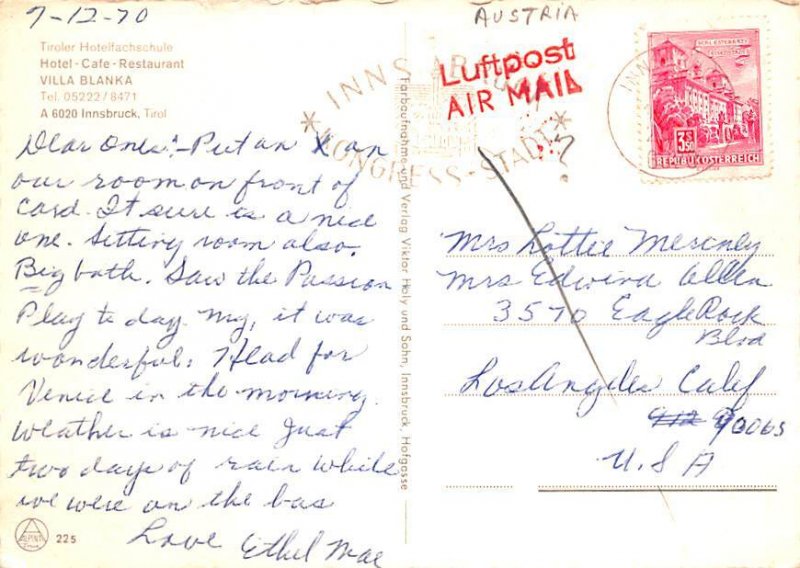 9-12-70
AUSTRIA
Tiroler Hotelfachschule
Hotel - Cafe - Restaurant
VILLA BLANKA
Tel. 05222/8471
A 6020 Innsbruck, Tirol
Dear Ones:- Put an X on
our room on front of
card. It sure is a nice
one. Sitting room also.
Big bath. Saw the Passion
Play to day. My, it was
wonderful. Head for
Venice in the morning.
Weather is nice Just
two days of rain while
we were on the bas
Love Ethel Mae
225
Farbaufnahme und Verlag Viktor Holy und Sohn, Innsbruck, Hofgasse
INNSBRUCK
KONGRESS-STADT
Luftpost
AIR MAIL
?
3.50
REPUBLIK ÖSTERREICH
Mrs Lottie
Mrs Edwina Allen
3570 Eagle Rock
Blvd
Los Angeles Calif
90065
U.S A